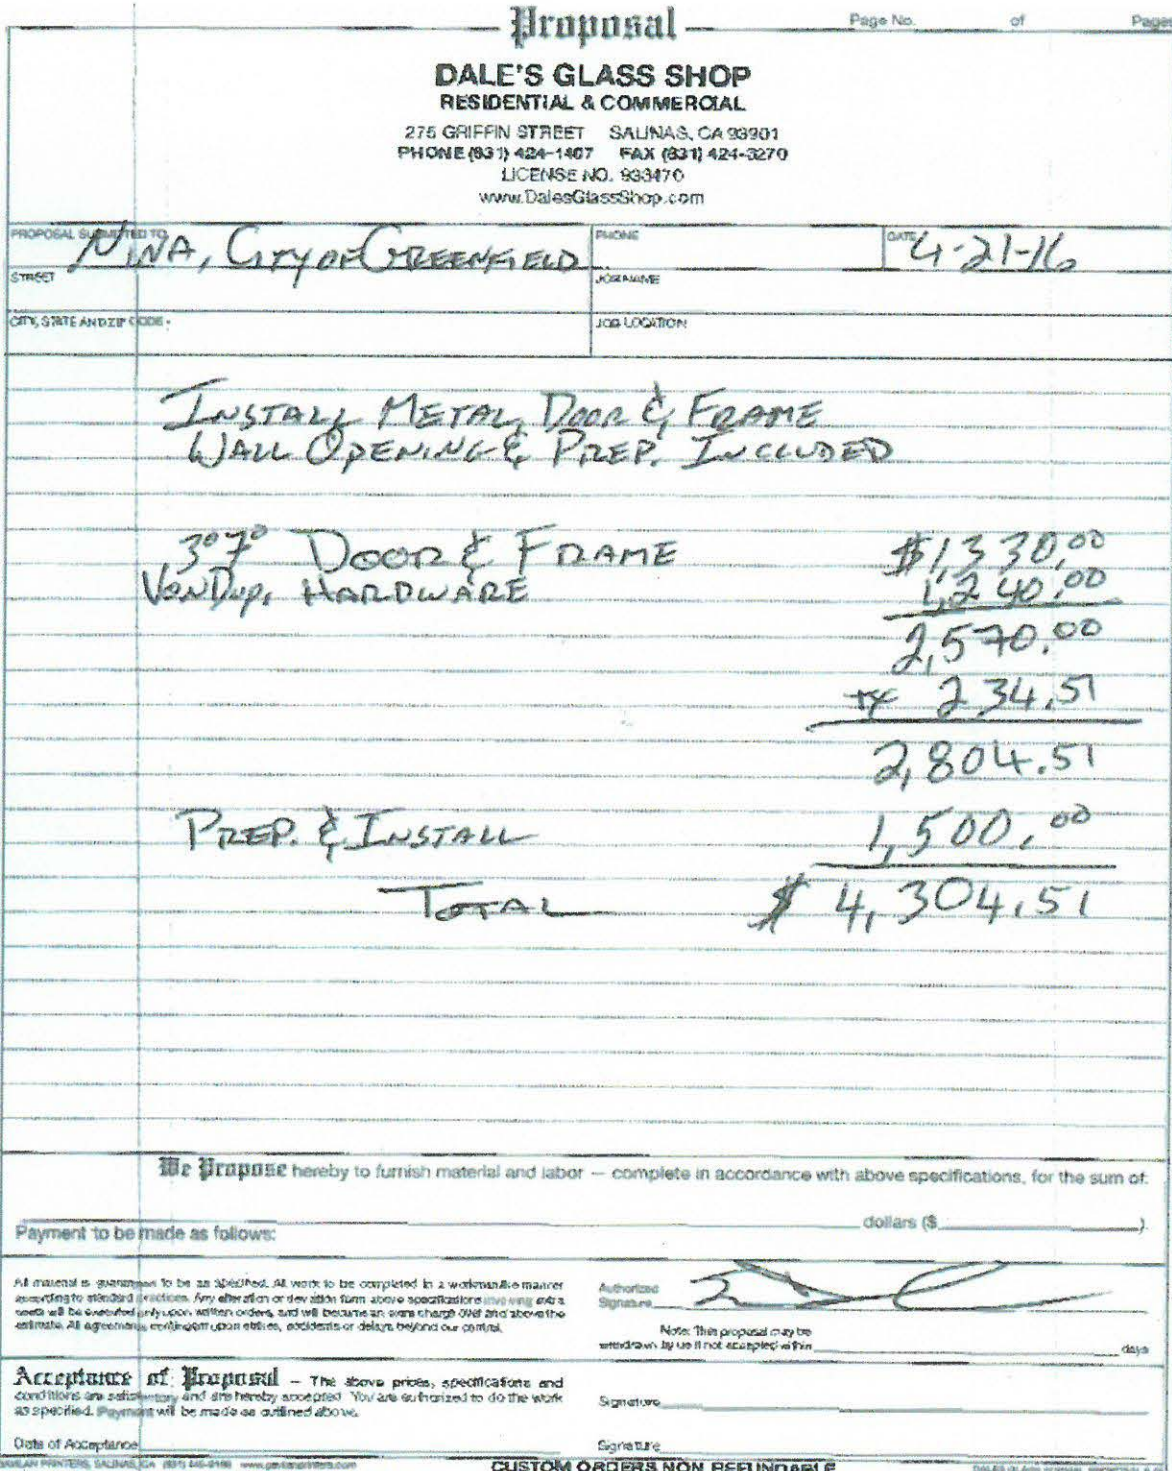 Proposal
Page No. of Pages
DALE'S GLASS SHOP
RESIDENTIAL & COMMERCIAL
275 GRIFFIN STREET SALINAS, CA 93901
PHONE (831) 424-1467 FAX (831) 424-3270
LICENSE NO. 933470
www.DalesGlassShop.com
PROPOSAL SUBMITTED TO NINA, CITY OF GREENFIELD PHONE DATE 4-21-16
STREET JOB NAME
CITY, STATE AND ZIP CODE JOB LOCATION
INSTALL METAL DOOR & FRAME
WALL OPENING & PREP. INCLUDED
3⁰7⁰ DOOR & FRAME $1,330.00
HARDWARE 1,240.00
2,570.00
tx 234.51
2,804.51
PREP. & INSTALL 1,500.00
TOTAL $4,304.51
We Propose hereby to furnish material and labor — complete in accordance with above specifications, for the sum of:
dollars ($ ).
Payment to be made as follows:
All material is guaranteed to be as specified. All work to be completed in a workmanlike manner
according to standard practices. Any alteration or deviation form above specifications involving extra
costs will be executed only upon written orders, and will become an extra charge over and above the
estimate. All agreements contingent upon strikes, accidents or delays beyond our control.
Authorized
Signature
Note: This proposal may be
withdrawn by us if not accepted within days
Acceptance of Proposal – The above prices, specifications and
conditions are satisfactory and are hereby accepted. You are authorized to do the work
as specified. Payment will be made as outlined above.
Signature
Date of Acceptance
Signature
PRINTERS, SALINAS, CA
CUSTOM ORDERS NON REFUNDABLE